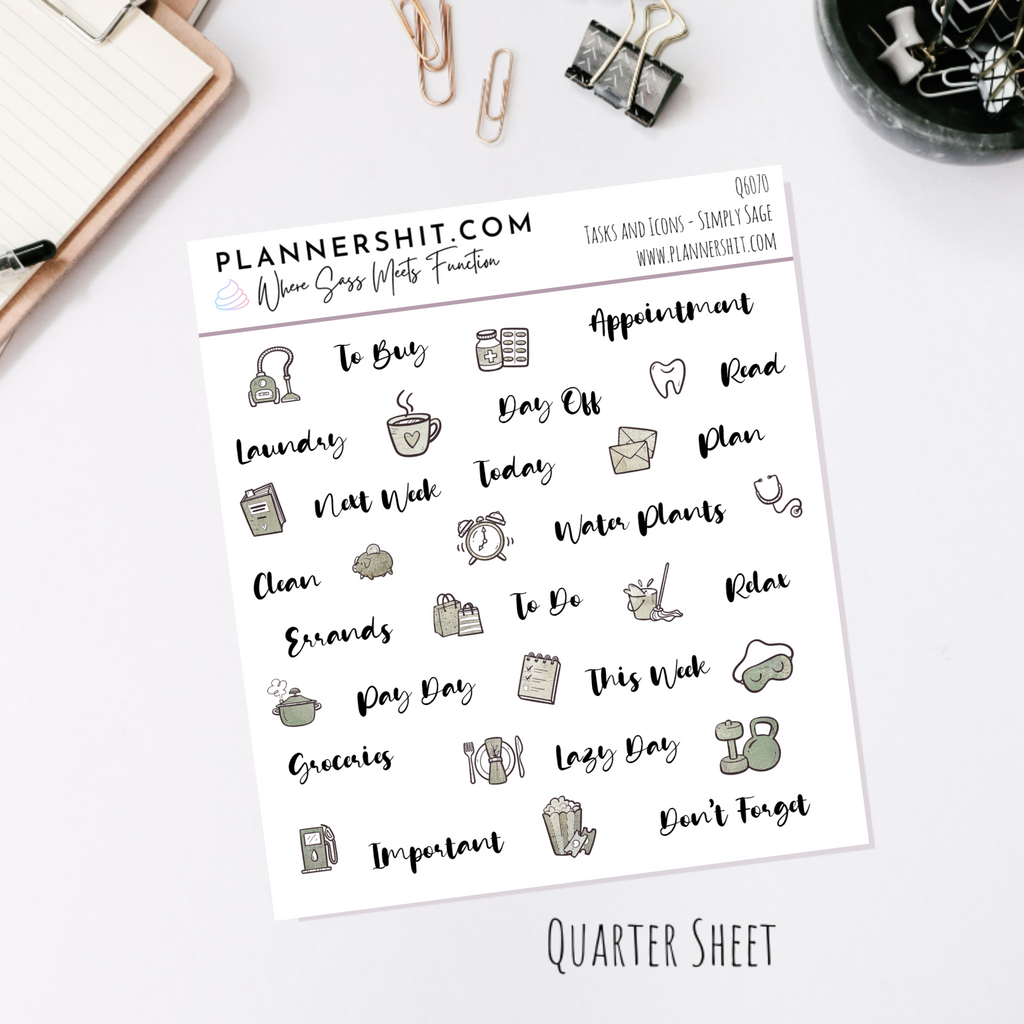 PLANNERSHIT.COM
Where Sass Meets Function
Q6070
Tasks and Icons - Simply Sage
www.plannershit.com
To Buy
Appointment
Read
Day Off
Laundry
Plan
Today
Next Week
Water Plants
Clean
To Do
Relax
Errands
This Week
Pay Day
Groceries
Lazy Day
Don't Forget
Important
Quarter Sheet